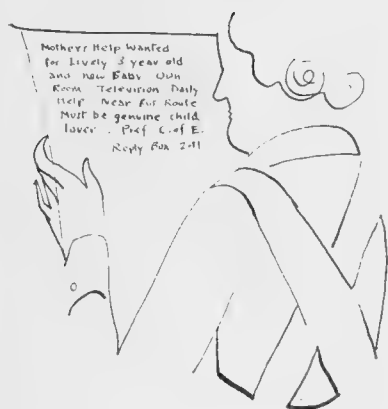 Mothers Help Wanted
for Lively 3 year old
and new Baby Own
Room Television Daily
Help Near Bus Route
Must be genuine child
lover. Pref C. of E.
Reply Box 211